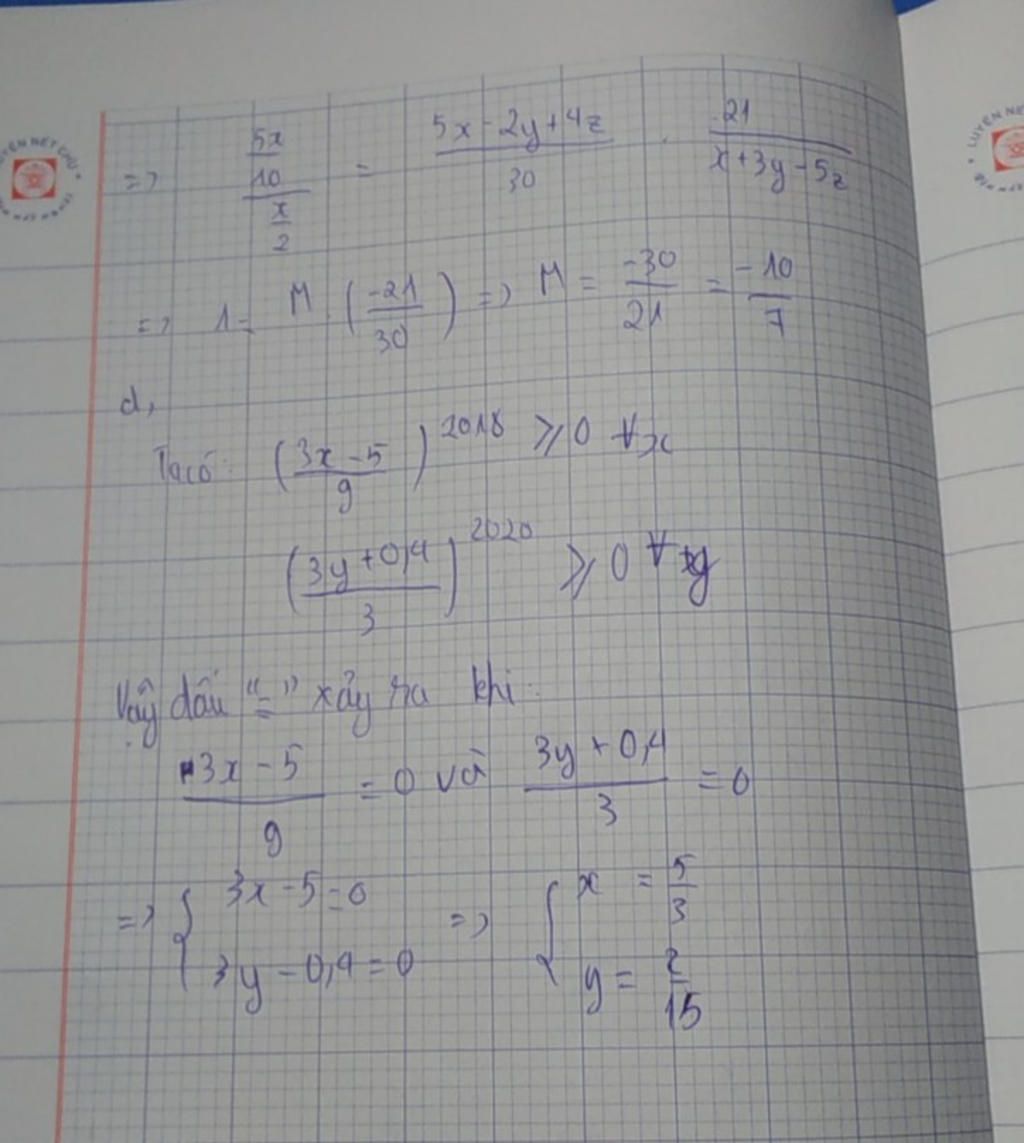 => (5x/10)/(x/2) = (5x - 2y + 4z)/30 . -21/(x + 3y - 5z)
=> 1 = M . (-21/30) => M = -30/21 = -10/7
d,
Ta có: ((3x - 5)/9)^2018 ⩾ 0 ∀x
((3y + 0,4)/3)^2020 ⩾ 0 ∀y
Vậy dấu "=" xảy ra khi:
(3x - 5)/9 = 0 và (3y + 0,4)/3 = 0
=> { 3x - 5 = 0 => { x = 5/3
3y - 0,4 = 0 y = 2/15
LUYỆN NÉT CHỮ